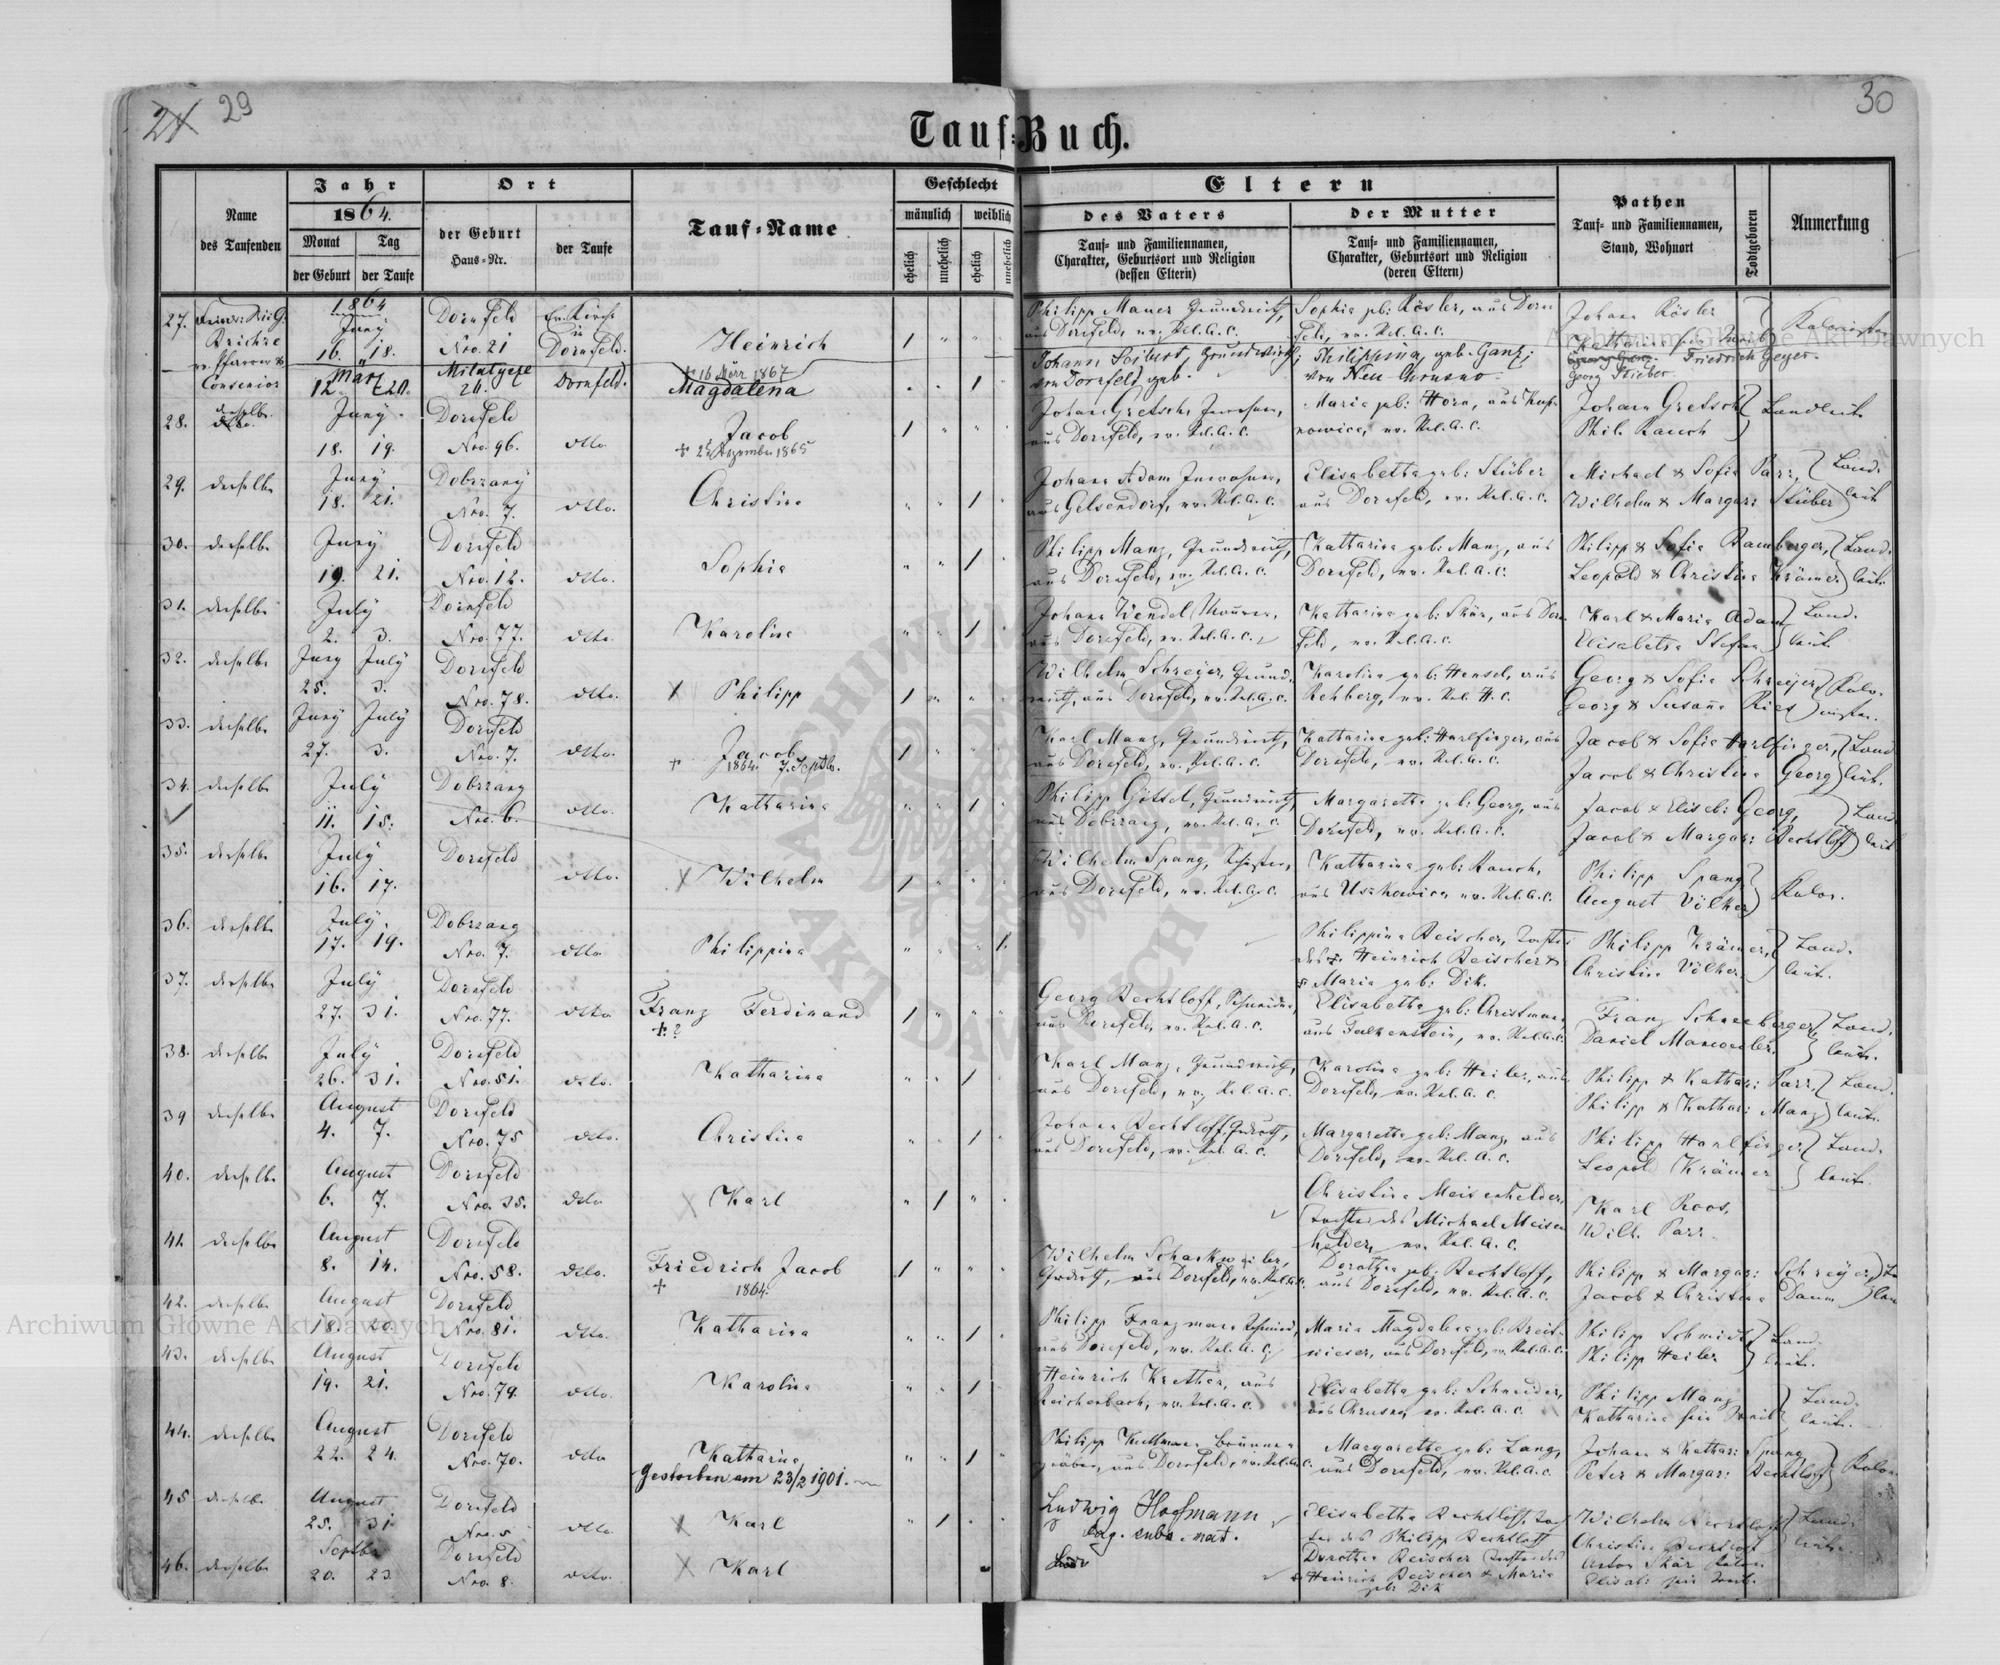 29
30
Tauf-Buch.
Name des Taufenden
Jahr
1864.
Monat
Tag
der Geburt
der Taufe
Ort
der Geburt
Haus-Nr.
der Taufe
Tauf-Name
Geschlecht
männlich
weiblich
ehelich
unehelich
ehelich
unehelich
Eltern
des Vaters
Tauf- und Familiennamen,
Charakter, Geburtsort und Religion
(dessen Eltern)
der Mutter
Tauf- und Familiennamen,
Charakter, Geburtsort und Religion
(deren Eltern)
Pathen
Tauf- und Familiennamen,
Stand, Wohnort
Todtgeboren
Anmerkung
27.
1864
Juny
16. 18.
Dornfeld
Nro. 21
ev. Kirche
in
Dornfeld.
Heinrich
Philipp Maurer Grundwirth,
aus Dornfeld, ev. Rel. A. C.
Sophia geb: Rösler, aus Dorn
feld, ev. Rel. A. C.
Johann Rösler
März
12. 20.
26.
Dornfeld.
+ 16 März 1867
Magdalena
Johann Seibert, Grundwirth
von Dornfeld geb.
Philippina, geb. Ganz;
von Neu Chrusno
Friedrich Geyer.
Georg Stieber
28. derselbe
Juny
18. 19.
Dornfeld
Nro. 96.
dtto
Jacob
+ Dezember 1865
Johann Gretsch,
aus Dornfeld, ev. Rel. A. C.
Maria geb: Horn, aus
ev. Rel. A. C.
Johann Gretsch
Phil. Rauch
Landleute
29. derselbe
Juny
18. 21.
Dobrzany
Nro. 7.
dtto.
Christina
Johann Adam
aus Gelsendorf, ev. Rel. A. C.
Elisabetha geb: Stüber
aus Dornfeld, ev. Rel. A. C.
Michael & Sofia Parr,
Wilhelm & Margar: Stüber
Land-
leute
30. derselbe
Juny
19. 21.
Dornfeld
Nro. 12.
dtto.
Sophia
Philipp Manz, Grundwirth,
aus Dornfeld, ev. Rel. A. C.
Katharina geb: Manz, aus
Dornfeld, ev. Rel. A. C.
Philipp & Sofia Bamberger,
Leopold & Christina Krämer
Land-
leute.
31. derselbe
July
2. 3.
Dornfeld
Nro. 77.
dtto.
Karolina
Johann Wendel Maurer,
aus Dornfeld, ev. Rel. A. C.
Katharina geb: Skär, aus Dorn
feld, ev. Rel. A. C.
Karl & Maria Adam
Elisabetha Stefan
Land-
leute.
32. derselbe
Juny July
25. 3.
Dornfeld
Nro. 78.
dtto.
Philipp
Wilhelm Schreyer, Grund-
wirth, aus Dornfeld, ev. Rel. A. C.
Karolina geb: Hensel, aus
Rehberg, ev. Rel. H. C.
Georg & Sofia Schreyer,
Georg & Susana Ries
33. derselbe
Juny July
27. 3.
Dornfeld
Nro. 7.
dtto.
Jacob
+ 1864. 7. Septbr.
Karl Manz, Grundwirth,
aus Dornfeld, ev. Rel. A. C.
Katharina geb: Harlfinger, aus
Dornfeld, ev. Rel. A. C.
Jacob & Sofia Harlfinger,
Jacob & Christina Georg
Land
leute.
34. derselbe
July
11. 15.
Dobrzany
Nro. 6.
dtto.
Katharina
Philipp Göttel, Grundwirth,
aus Dobrzany, ev. Rel. A. C.
Margaretha geb: Georg, aus
Dornfeld, ev. Rel. A. C.
Jacob & Elisab: Georg,
Jacob & Margar: Bechtloff
Land
leute
35. derselbe
July
16. 17.
Dornfeld
dtto.
Wilhelm
Wilhelm Spang, Schuster,
aus Dornfeld, ev. Rel. A. C.
Katharina geb: Rauch,
aus Uszkowice, ev. Rel. A. C.
Philipp Spang
August Völker
Kolon.
36. derselbe
July
17. 19.
Dobrzany
Nro. 7.
dtto.
Philippina
Philippina Reischer, Tochter
des Heinrich Reischer &
Maria geb: Dik.
Philipp Krämer,
Christina Völker
Land-
leute.
37. derselbe
July
27. 31.
Dornfeld
Nro. 77.
dtto
Franz Ferdinand
+ ?
Georg Bechtloff, Schneider,
aus Dornfeld, ev. Rel. A. C.
Elisabetha geb: Christmann
aus Falkenstein, ev. Rel. A. C.
Franz Schneeberger
Daniel Manweiler.
Land-
leute.
38. derselbe
July
26. 31.
Dornfeld
Nro. 51.
dtto.
Katharina
Karl Manz, Grundwirth,
aus Dornfeld, ev. Rel. A. C.
Karolina geb: Heiler, aus
Dornfeld, ev. Rel. A. C.
Philipp & Kathar: Parr.
Philipp & Kathar: Manz
Land-
leute.
39 derselbe
August
4. 7.
Dornfeld
Nro. 75
dtto.
Christina
Johann Bechtloff,
aus Dornfeld, ev. Rel. A. C.
Margaretha geb: Manz, aus
Dornfeld, ev. Rel. A. C.
Philipp Harlfinger
Leopold Krämer
Land-
leute.
40. derselbe
August
6. 7.
Dornfeld
Nro. 35.
dtto
Karl
Christina Meisenhelder,
Tochter des Michael Meisen
helder, ev. Rel. A. C.
Karl Roos,
Wilh. Parr.
41. derselbe
August
8. 14.
Dornfeld
Nro. 58.
dtto.
Friedrich Jacob
+ 1864.
Wilhelm
aus Dornfeld, ev. Rel. A. C.
Dorothea geb: Bechtloff,
aus Dornfeld, ev. Rel. A. C.
Philipp & Margar: Schreyer,
Jacob & Christina Daum
42. derselbe
August
18. 20.
Dornfeld
Nro. 81.
dtto.
Katharina
Philipp Franzmann Schmied,
aus Dornfeld, ev. Rel. A. C.
Maria Magdalena geb: Breit-
wieser, aus Dornfeld, ev. Rel. A. C.
Philipp Schmidt
Philipp Heiler
Land-
leute.
43. derselbe
August
19. 21.
Dornfeld
Nro. 79.
dtto.
Karolina
Heinrich Krether, aus
Reichenbach, ev. Rel. A. C.
Elisabetha geb: Schneider,
aus Chrusno, ev. Rel. A. C.
Philipp Manz
Katharina sein Weib
Land-
leute.
44. derselbe
August
22. 24.
Dornfeld
Nro. 70.
dtto
Katharina
Gestorben am 23/2 1901.
Philipp Kullmann Brunnen
gräber, aus Dornfeld, ev. Rel. A. C.
Margaretha geb: Lang,
aus Dornfeld, ev. Rel. A. C.
Johann & Kathar: Spang
Peter & Margar: Bechtloff
Kolon.
45 derselbe
August
25. 31
Dornfeld
Nro. 5
dtto.
Karl
Ludwig Hoffmann
Elisabetha Bechtloff, Toch
ter des Philipp Bechtloff
Wilhelm Bechtloff
Christina Bechtloff
Land-
leute.
46. derselbe
Septbr
20. 23.
Dornfeld
Nro. 8.
dtto.
Karl
Dorothea Reischer Tochter des
Heinrich Reischer & Maria
geb: Dik
Anton Skär
Elisab: sein Weib.
Archiwum Główne Akt Dawnych
Archiwum Główne Akt Dawnych
ARCHIWUM GŁÓWNE AKT DAWNYCH